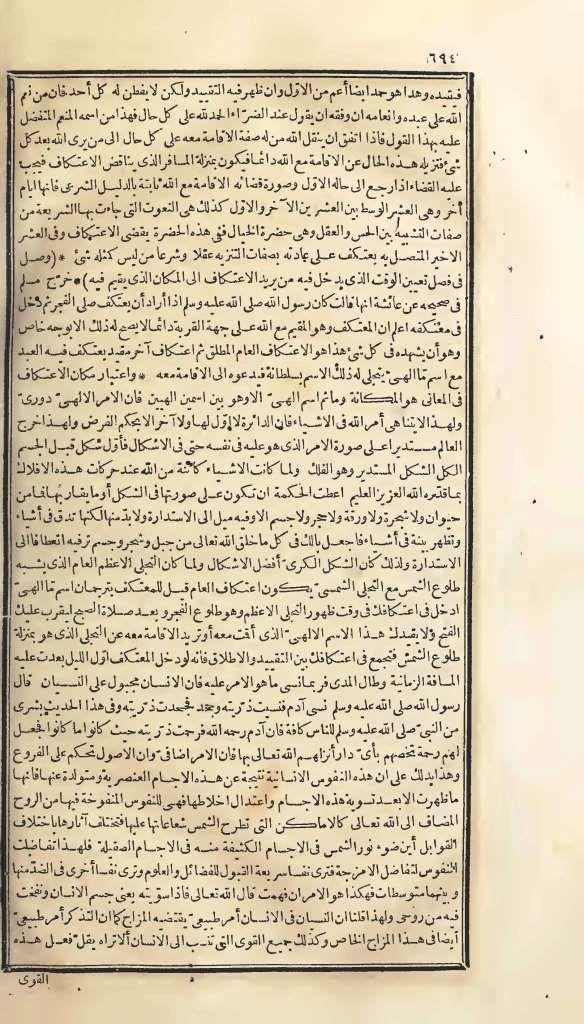 ٦٩٤
فيقيده وهذا هو حمد ايضا أعم من الاول وان ظهر فيه التقييد ولكن لا يفطن له كل أحد فان من نعم
الله على عبده وانعامه ان وفقه ان يقول عند الضراء الحمد لله على كل حال فهذا من اسمه المنعم المتفضل
عليه بهذا القول فاذا اتفق ان ينتقل الله من له صفة الاقامة معه على كل حال الى من يرى الله بعد كل
شئ فتزيله هذه الحال عن الاقامة مع الله دائما فيكون بمنزلة المسافر الذى يناقض الاعتكاف فيجب
عليه القضاء اذا رجع الى حاله الاول وصورة قضائه الاقامة مع الله ثابتة بالدليل الشرعى فانها ايام
أخر وهى العشر الوسط بين العشرين الآخر والاول كذلك هى النعوت التى جاءت بها الشريعة من
صفات التشبيه بين الحس والعقل وهى حضرة الخيال ففى هذه الحضرة يقضى الاعتكاف وفى العشر
الاخير المتصل به يعتكف على عادته بصفات التنزيه عقلا وشرعا من ليس كمثله شئ * (وصل
فى فصل تعيين الوقت الذى يدخل فيه من يريد الاعتكاف الى المكان الذى يقيم فيه) * خرّج مسلم
فى صحيحه عن عائشة انها قالت كان رسول الله صلى الله عليه وسلم اذا أراد أن يعتكف صلى الفجر ثم دخل
فى معتكفه اعلم ان المعتكف وهو المقيم مع الله على جهة القربة دائما لا يصح له ذلك الا بوجه خاص
وهو أن يشهده فى كل شئ هذا هو الاعتكاف العام المطلق ثم اعتكاف آخر مقيد يعتكف فيه العبد
مع اسم ما الهىّ يتجلى له ذلك الاسم بسلطانه فيدعوه الى الاقامة معه * واعتبار مكان الاعتكاف
فى المعانى هو المكانة وما ثم اسم الهىّ الا وهو بين اسمين الهيين فان الامر الالهىّ دورىّ
ولهذا لا يتناهى أمر الله فى الاشياء فان الدائرة لا اول لها ولا آخر الا بحكم الفرض ولهذا خرج
العالم مستديرا على صورة الامر الذى هو عليه فى نفسه حتى فى الاشكال فأول شكل قبل الجسم
الكل الشكل المستدير وهو الفلك ولما كانت الاشياء كائنة من الله عند حركات هذه الافلاك
بما قدّره الله العزيز العليم اعطت الحكمة ان تكون على صورتها فى الشكل أو ما يقاربها فما من
حيوان ولا شجرة ولا ورقة ولا حجر ولا جسم الا وفيه ميل الى الاستدارة ولا بد منها لكنها تدق فى أشياء
وتظهر بينة فى أشياء فاجعل بالك فى كل ما خلق الله تعالى من جبل وشجر وجسم تر فيه انعطافا الى
الاستدارة ولذلك كان الشكل الكرىّ أفضل الاشكال ولما كان التجلى الاعظم العام الذى يشبه
طلوع الشمس مع التجلى الشمسىّ يكون اعتكاف العام قيل للمعتكف بترجمان اسم ما الهىّ
ادخل فى اعتكافك فى وقت ظهور التجلى الاعظم وهو طلوع الفجر وبعد صلاة الصبح ليقرب عليك
الفتح ولا يقيدك هذا الاسم الالهىّ الذى أقمت معه أو تريد الاقامة معه عن التجلى الذى هو بمنزلة
طلوع الشمس فتجمع فى اعتكافك بين التقييد والاطلاق فانه لو دخل المعتكف اول الليل بعدت عليه
المسافة الزمانية وطال المدى فربما نسى ما هو الامر عليه فان الانسان مجبول على النسيان قال
رسول الله صلى الله عليه وسلم نسى آدم فنسيت ذريته وجحد فجحدت ذريته وفى هذا الحديث بشرى
من النبىّ صلى الله عليه وسلم للناس كافة فان آدم رحمه الله فرحمت ذريته حيث كانوا ما كانوا فجعل
لهم رحمة تخصهم بأىّ دار أنزلهم الله تعالى بها فان الامر اضافىّ وان الاصول تحكم على الفروع
وهذا يدلك على ان هذه النفوس الانسانية نتيجة عن هذه الاجسام العنصرية ومتولدة عنها فانها
ما ظهرت الا بعد تسوية هذه الاجسام واعتدال اخلاطها فهى للنفوس المنفوخة فيها من الروح
المضاف الى الله تعالى كالاماكن التى تطرح الشمس شعاعاتها عليها فتختلف آثارها باختلاف
القوابل أين ضوء نور الشمس فى الاجسام الكثيفة منه فى الاجسام الصقيلة فلهذا تفاضلت
النفوس لتفاضل الامزجة فترى نفسا سريعة القبول للفضائل والعلوم وترى نفسا أخرى فى الضد منها
وبينهما متوسطات فهكذا هو الامر ان فهمت قال الله تعالى فاذا سوّيته يعنى جسم الانسان ونفخت
فيه من روحى ولهذا قلنا ان النسيان فى الانسان أمر طبيعىّ يقتضيه المزاج كما ان التذكر أمر طبيعىّ
أيضا فى هذا المزاج الخاص وكذلك جميع القوى التى تنسب الى الانسان ألا تراه يقل فعل هذه
القوى